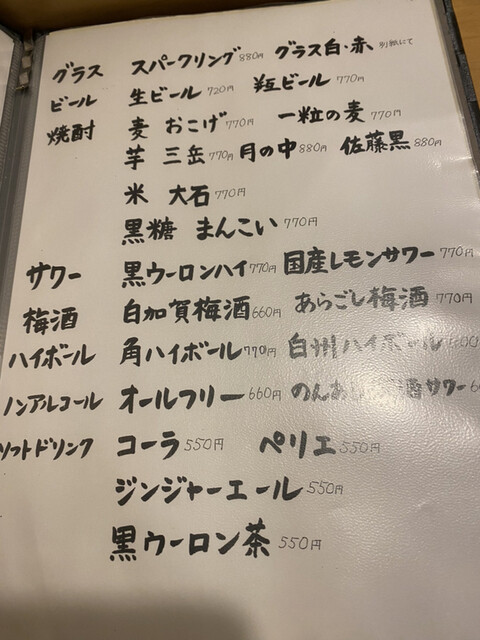 グラス スパークリング 880円 グラス白・赤 別紙にて
ビール 生ビール 720円 瓶ビール 770円
焼酎 麦 おこげ 770円 一粒の麦 770円
芋 三岳 770円 月の中 880円 佐藤黒 880円
米 大石 770円
黒糖 まんこい 770円
サワー 黒ウーロンハイ 770円 国産レモンサワー 770円
梅酒 白加賀梅酒 660円 あらごし梅酒 770円
ハイボール 角ハイボール 770円 白州ハイボール
ノンアルコール オールフリー 660円 のんある サワー
ソフトドリンク コーラ 550円 ペリエ 550円
ジンジャーエール 550円
黒ウーロン茶 550円